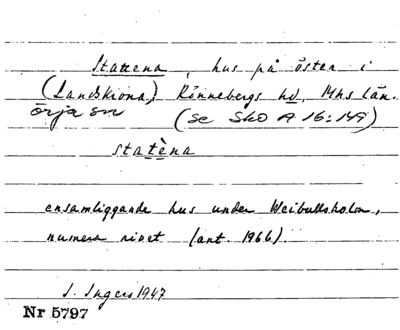 Stattena, hus på öster i
(Landskrona,) Rönnebergs hd, Mhs län.
örja sn (se Sko A 16:149)
statèna
ensamliggande hus under Weibullsholm,
numera rivet (ant. 1966).
I. Ingers 1947
Nr 5797